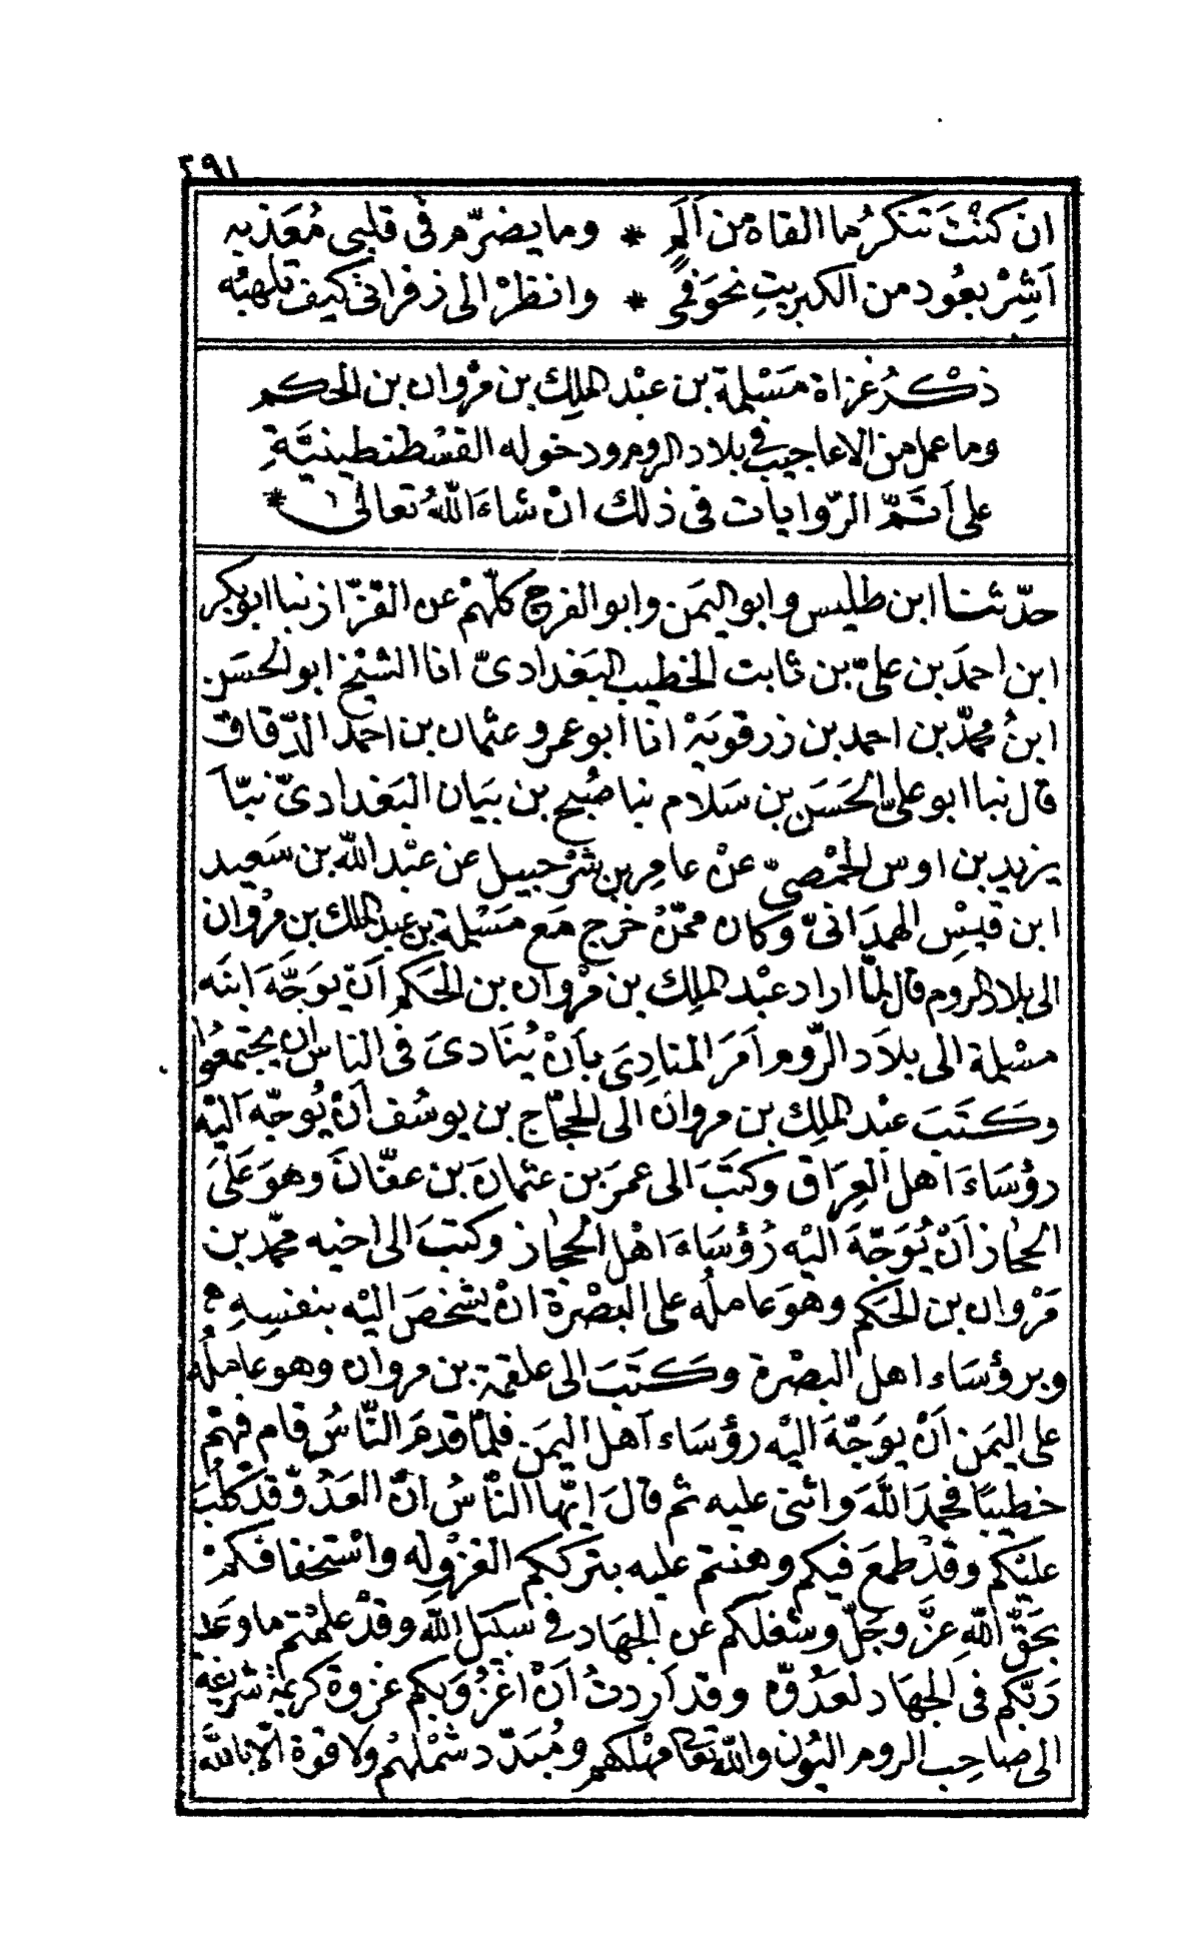 ٢٩١
ان كنْتَ تنكرُ ما القاه من اَلَمٍ * وما يضرّم فى قلبى مُعَذبه
اَشِرْ بعُود من الكبريتِ نحوَ فمى * وانظرْ الى زفراتى كيف تلهبُه
ذكْرُ غزاة مَسْلمة بن عبْد الملِك بن مرْوان بن الحكم
وما عمل من الاعاجيب فى بلاد الروم ودخوله القسْطنطينيَّةِ
على اَتَمِّ الرّوايات فى ذلك انْ شاءَ اللّهُ تعالى *
حدّثنا ابن طليس وابو اليمَن وابو الفرج كلّهمْ عن القزّاز نبا ابو بكر
ابن احمدَ بن علىّ بن ثابت الخطيب البَغدادىّ انا الشيْخ ابو الحسَن
ابنُ محمّد بن احمد بن زرقويَهْ انا ابو عمرو عثمان بن احمد الدّقاق
قال نبا ابو علىّ الحَسَن بن سَلام نبا صُبيح بن بيَان البَغدادىّ نبّا
يزيد بن اوس الحمْصىّ عنْ عامِر بن شرْحبيل عن عبْد اللّه بن سَعيد
ابن قيسْ الهمدَانىّ وكان ممّنْ خرج مَع مَسْلمة بن عبد الملك بن مرْوان
الى بلاد الروم قال لمّا اراد عبْد الملِك بن مرْوان بن الحَكم اَنّ يوَجّهَ ابنَه
مسْلمة الى بلاَد الرّوم اَمَر المنادِىَ باَنْ يُنَادىَ فى الناس ان يجتمعُوا
وكتَبَ عبْد الملِك بن مروان الى الحجّاج بن يوسُف اَنْ يُوجّه اليْه
رؤسَاءَ اهل العِرَاق وكتَبَ الى عمرَ بن عثمانَ بن عفّانَ وهوَ عَلىَ
الحجاز اَنْ يُوَجّهَ اليْه رُؤسَاءَ اهْل الحجاز وكتبَ الى اخيه محمّد بن
مَرْوان بن الحَكم وهوَ عاملُه على البَصْرة انْ يشخصَ اليْه بنفسِه
وبرؤسَاء اهل البصْرة وكتَبَ الى علقمة بن مروان وهو عاملُه
على اليمَن اَنْ يوَجّهَ اليْه رؤسَاء اَهل اليمَن فلمّا قدمَ النّاسُ قام فيهم
خطيبًا فحمدَ اللّهَ واثنى عليه ثم قالَ ايّها النّاسُ انّ العَدُوّ قدْ كلَبَ
عليْكم وقدْ طمعَ فيكم وهنتم عليه بتركِكم الغزْوَ له واسْتخفافكمْ
بحَقِّ اللّهِ عزَّ وجَلَّ وشغلكم عن الجهَاد فى سبَيل اللّه وقدْ علمْتم ما وعَدَ
رَبّكم فى الجهَاد لعَدُوّه وقد اردتُ اَنْ اغْزُوَ بكم غزوة كريمَة شريفة
الى صاحِب الروم اليُون واللّه تعالى مهْلكهم ومُبَدّد شمْلهُم ولا قوة الّا باللّه